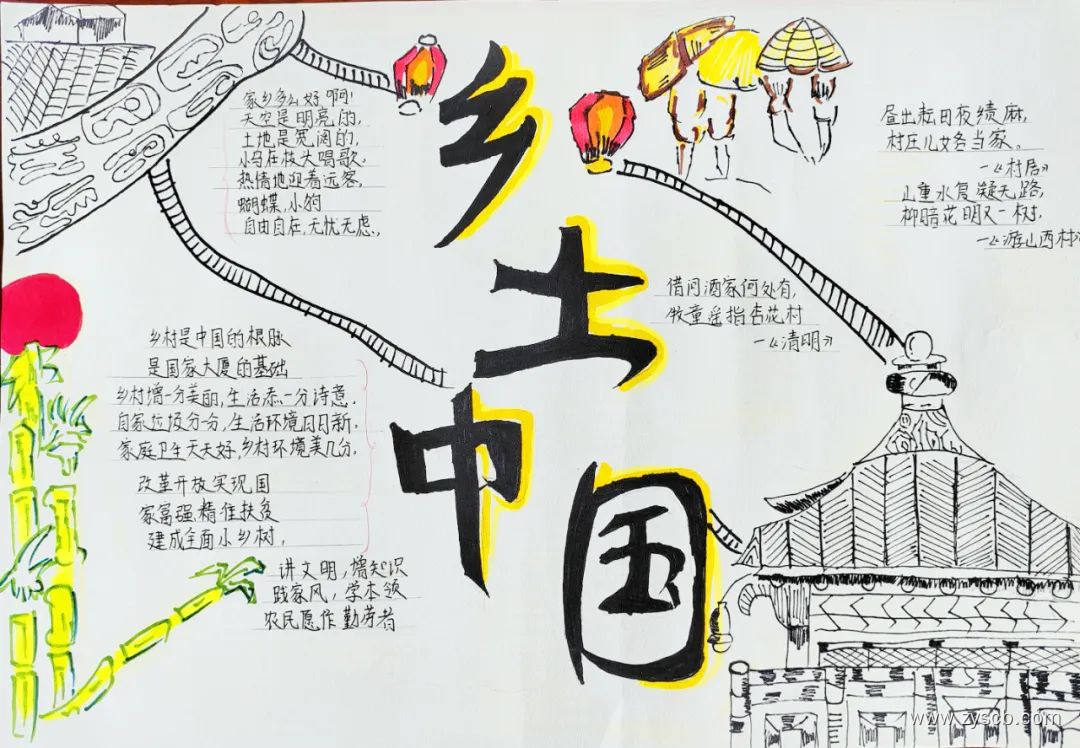 乡土中国
家乡多么好啊!
天空是明亮的,
土地是宽阔的,
小鸟在枝头唱歌,
热情地迎着远客,
蝴蝶,小狗
自由自在,无忧无虑,
昼出耘田夜绩麻,
村庄儿女各当家。
—《村居》
山重水复疑无路,
柳暗花明又一村,
—《游山西村
借问酒家何处有,
牧童遥指杏花村
—《清明》
乡村是中国的根脉
是国家大厦的基础
乡村增一分美丽,生活添一分诗意.
自家垃圾分一分,生活环境日日新.
家庭卫生天天好,乡村环境美几分.
改革开放实现国
家富强,精准扶贫
建成全面小乡村.
讲文明,增知识
践家风,学本领
农民愿作勤劳者
www.zyscb.com